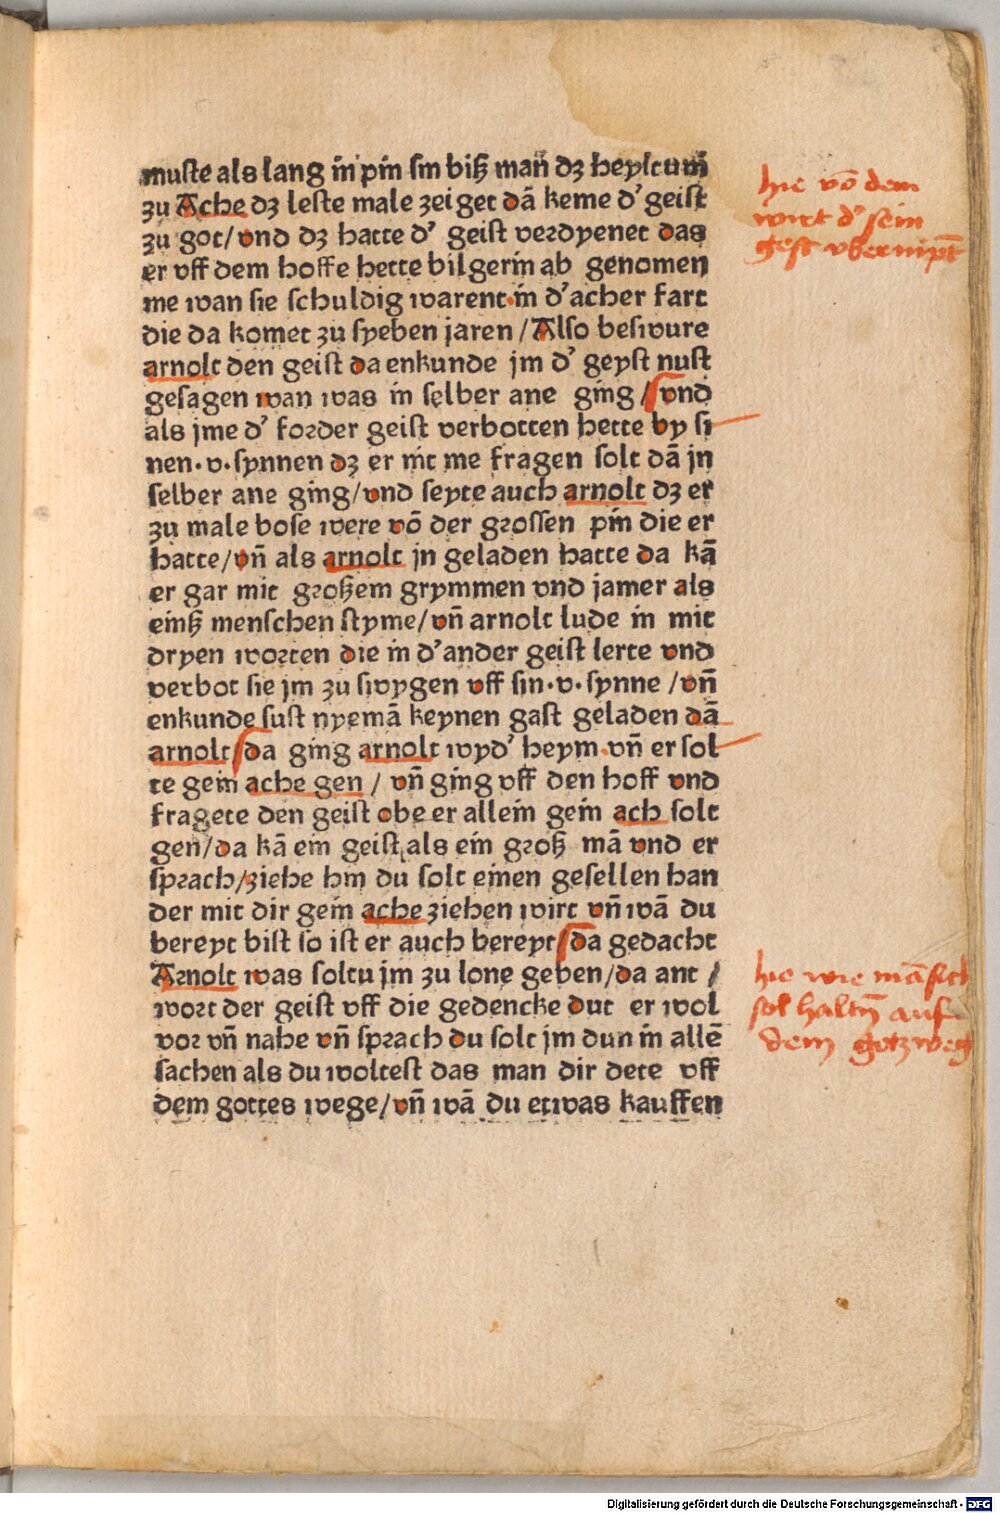 muste als lang in pin sin biß man̄ dz heyltum̄
zu Ache dz leste male zeiget dā keme d' geist
zu got/ vnd dz hatte d' geist verdyenet das
er vff dem hoffe hette bilgerin ab genomen
me wan sie schuldig warent·in d' acher fart
die da komet zu syeben jaren / Also beswure
arnolt den geist da enkunde jm d' geyst nust
gesagen wan was in selber ane ging / vnd
als jme d' forder geist verbotten hette by si
nen·v·synnen dz er nit me fragen solt dā jn
selber ane ging/vnd seyte auch arnolt dz er
zu male bose were vō der grossen pin die er
hatte/vn̄ als arnolt jn geladen hatte da kā
er gar mit großem grymmen vnd jamer als
einß menschen styme/vn̄ arnolt lude in mit
dryen worten die in d' ander geist lerte vnd
verbot sie jm zu swygen vff sin·v·synne /vn̄
enkunde sust nyemā keynen gast geladen dā
arnolt da ging arnolt wyd' heym·vn̄ er sol
te gein ache gen / vn̄ ging vff den hoff vnd
fragete den geist obe er allein gein ach solt
gen/da kā ein geist als ein groß mā vnd er
sprach/ziehe hin du solt einen gesellen han
der mit dir gein ache ziehen wirt vn̄ wā du
bereyt bist so ist er auch bereyt da gedacht
Arnolt was soltu jm zu lone geben/da ant /
wort der geist vff die gedencke dut er wol
vor vn̄ nahe vn̄ sprach du solt jm dun in allē
sachen als du woltest das man dir dete vff
dem gottes wege/vn̄ wā du etwas kauffen
hie vō dem
wirt d' sein
gest vbernipt̄
hie wie mā sich
sol haltn̄ auf
dem gotzweg
Digitalisierung gefördert durch die Deutsche Forschungsgemeinschaft - DFG